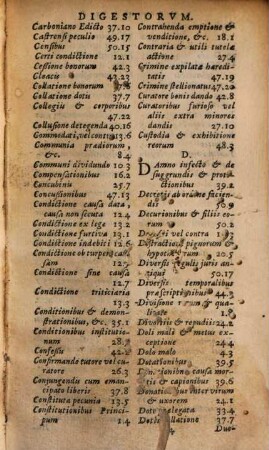 DIGESTORVM.
Carboniano Edicto 37.10
Castrensi peculio 49.17
Censibus 50.15
Certi condictione 12.1
Cessione bonorum 42.3
Cloacis 43.23
Collatione bonorum
Collatione dotis 37.7
Collegiis & corporibus
47.22
Collusione detegenda 40.16
Commodati, vel contra 13.6
Communia prædiorum,
&c. 8.4
Communi dividundo 10.3
Compensationibus 16.2
Concubinis 25.7
Concussionibus 47.13
Condictione causa data
causa non secuta 12.4
Condictione ex lege 13.2
Condictione furtiva 13.1
Condictione indebiti 12.6
Condictione ob turpem causam
12.5
Condictione sine causa
12.7
Condictione triticiaria
13.3
Conditionibus & demonstrationibus,
&c. 35.1
Conditionibus institutionum
28.7
Confessis 42.2
Confirmando tutore vel curatore
26.3
Conjungendis cum emancipato
liberis 37.8
Constituta pecunia 13.5
Constitutionibus Principum
1.4
Contrahenda emptione &
venditione, &c. 18.1
Contraria & utili tutelæ
actione 27.4
Crimine expilatæ hereditatis
47.19
Crimine stellionatus 47.20
Curatore bonis dando 42.8
Curatoribus furioso vel
aliis extra minores
dandis 27.10
Custodia & exhibitione
reorum 48.3
D.
DAmno infecto & de
suggrundis & protectionibus
39.2
Decretis ab ordine faciendis
50.9
Decurionibus & filiis eorum
50.2
vel contra
Distractione pignorum &
hypothecarum 20.5
Diversis regulis juris antiqui
50.17
Diversis temporalibus
præscriptionibus 44.3
Divisione rerum & qualitate
1.8
Divortiis & repudiis 24.2
Doli mali & metus exceptione
44.4
Dolo malo 4.3
Donationibus 39.5
Donationibus causa mortis
& capionibus 39.6
Donationibus inter virum
& uxorem 24.1
Dote prælegata 33.4
Dotis collatione 37.7
4 Duo-